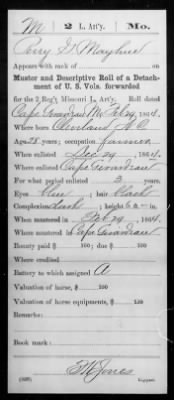 M | 2 L. Art'y. | Mo.
Perry G. Mayhue
Appears with rank of
Muster and Descriptive Roll of a Detach-
ment of U. S. Vols. forwarded
for the 2 Reg't Missouri L. Art'y. Roll dated
Cape Girardeau Mo. Feb 29, 1864.
Where born Cleveland, N.C.
Age 28 years; occupation farmer
When enlisted Dec 29, 186
Where enlisted Cape Girardeau
For what period enlisted 3 years.
Eyes blue; hair black
Complexion dark; height 6 ft. in.
When mustered in Feb 29, 1864.
Where mustered in Cape Girardeau
Bounty paid $ 100; due $ 100
Where credited
Battery to which assigned A
Valuation of horse, $ 100
Valuation of horse equipments, $ 100
Remarks:
Book mark:
Jones
Copyist.